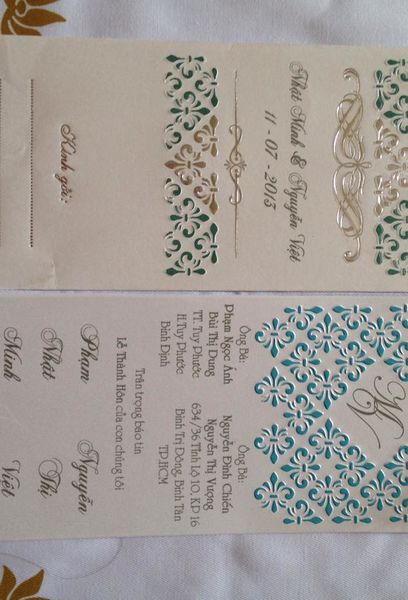 Nhật Minh & Nguyễn Việt
11 - 07 - 2015
Kính gửi:
Ông Bà:
Phạm Ngọc Ánh
Bùi Thị Dung
TT. Tuy Phước
H.Tuy Phước
Bình Định
Ông Bà:
Nguyễn Đình Chiến
Nguyễn Thị Vượng
634/36 Tỉnh Lộ 10, KD 16
Bình Trị Đông, Bình Tân
TP.HCM
Trân trọng báo tin
Lễ Thành Hôn của con chúng tôi
Phạm Nguyễn
Nhật Thị
Minh Việt